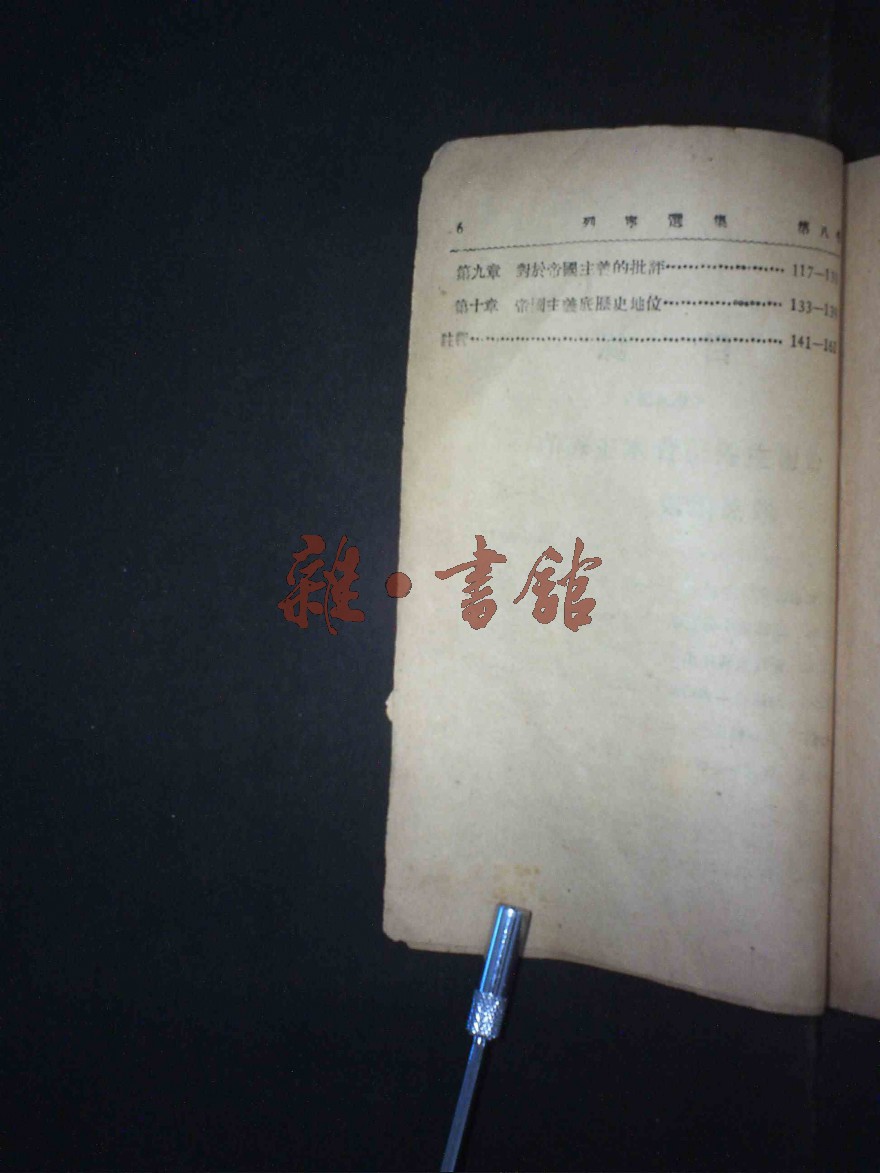 6 列寧選集 第八
第九章 對於帝國主義的批評 117—13
第十章 帝國主義底歷史地位 133—139
註釋 141—161
雜·書館